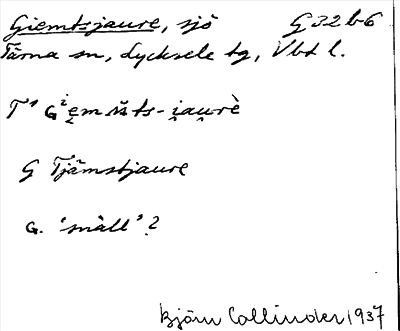 Giemtsjaure, sjö G 32 b 6
Tärna sn, Lycksele tg, Vbt l.
G Tjämstjaure
G. 'snäll'?
Björn Collinder 1937